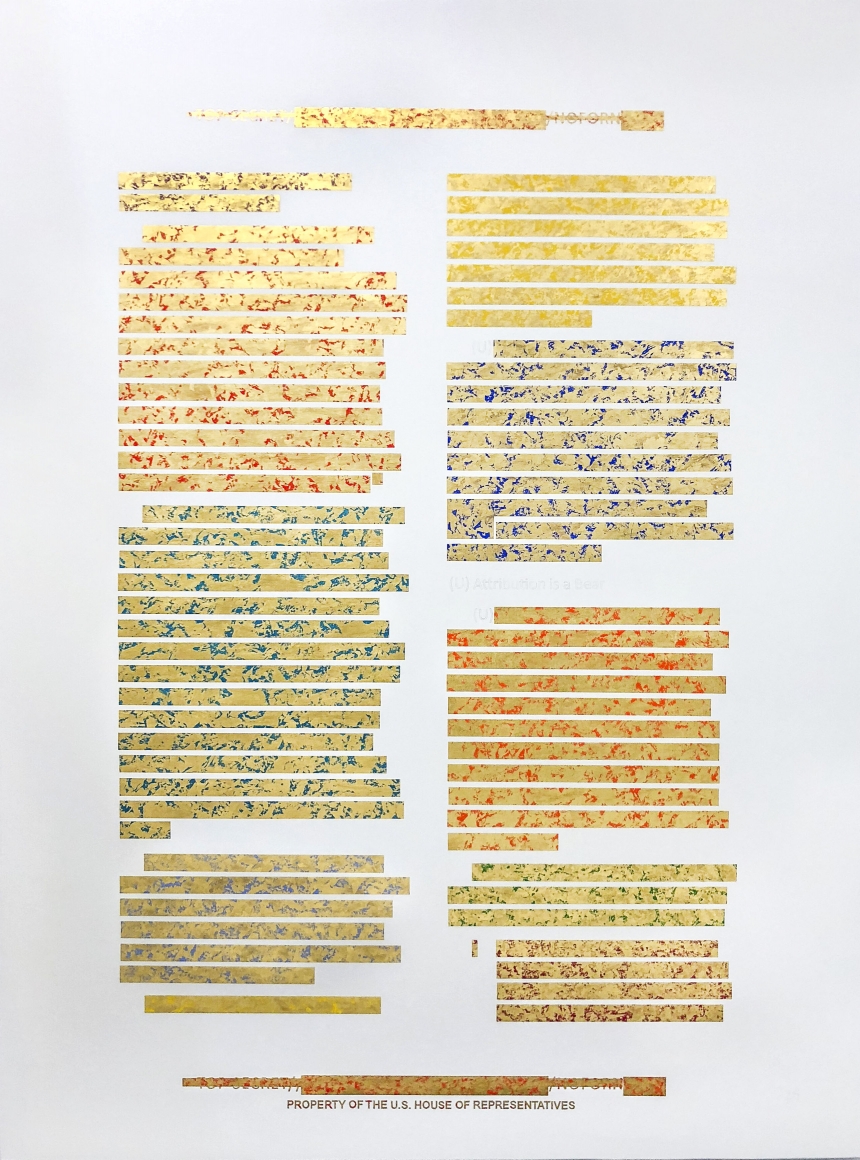 /NOFORN
(U)
(U) Attribution is a Bear
(U)
TOP SECRET// /NOFORN
PROPERTY OF THE U.S. HOUSE OF REPRESENTATIVES